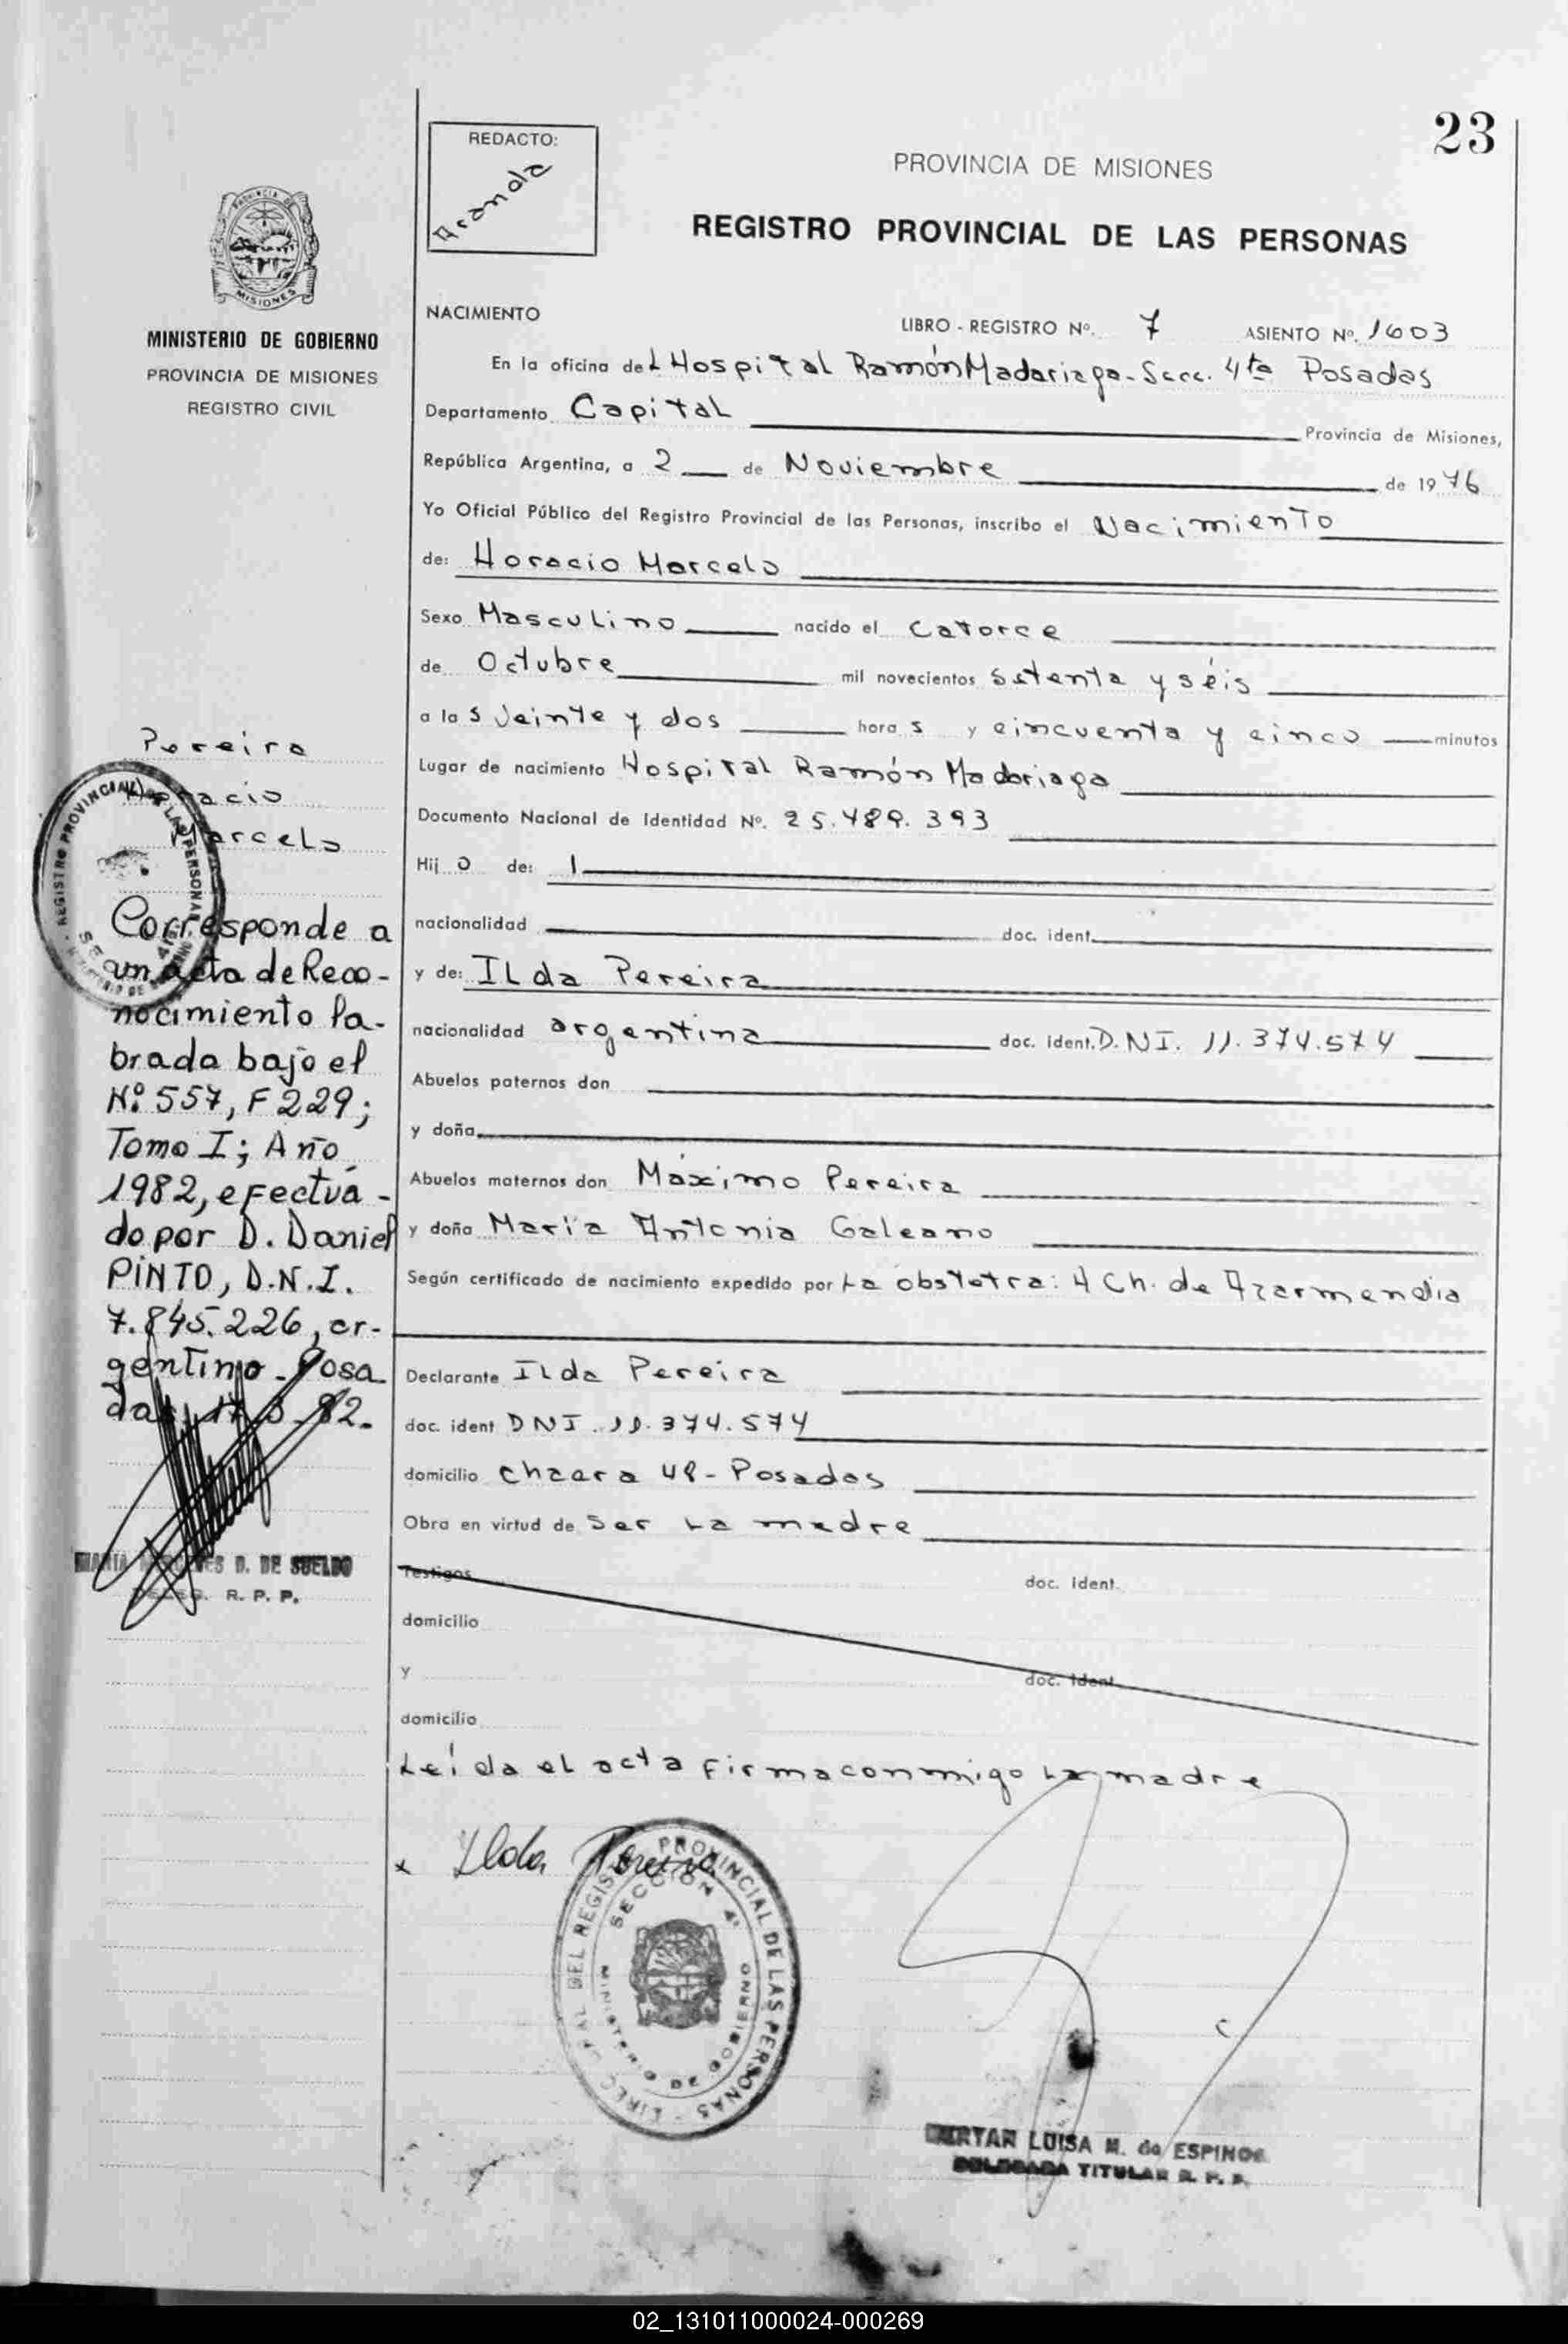 23
REDACTO:
Aranda
PROVINCIA DE MISIONES
REGISTRO PROVINCIAL DE LAS PERSONAS
MISIONES
MINISTERIO DE GOBIERNO
PROVINCIA DE MISIONES
REGISTRO CIVIL
NACIMIENTO
LIBRO - REGISTRO Nº. 7 ASIENTO Nº. 1603
En la oficina del Hospital Ramón Madariaga - Secc. 4ta Posadas
Departamento Capital Provincia de Misiones,
República Argentina, a 2 de Noviembre de 1976
Yo Oficial Público del Registro Provincial de las Personas, inscribo el Nacimiento
de: Horacio Marcelo
Sexo Masculino nacido el catorce
de Octubre mil novecientos setenta y séis
a las veinte y dos horas y cincuenta y cinco minutos
Lugar de nacimiento Hospital Ramón Madariaga
Documento Nacional de Identidad Nº. 25.489.393
Hijo de:
nacionalidad doc. ident.
y de: ILda Pereira
nacionalidad argentina doc. ident. D.N.I. 11.374.574
Abuelos paternos don
y doña
Abuelos maternos don Máximo Pereira
y doña María Antonia Galeano
Según certificado de nacimiento expedido por La obstetra: H Ch. de Azarmendia
Declarante ILda Pereira
doc. ident DNI. 11.374.574
domicilio chacra 48 - Posadas
Obra en virtud de ser La madre
Testigos doc. ident.
domicilio
y doc. ident.
domicilio
Leída el acta firma conmigo La madre
x Ilda Pereira
DEL REGISTRO PROVINCIAL DE LAS PERSONAS
SECCION 4ª
MINISTERIO DE GOBIERNO
LUISA M. de ESPINOSA
DELEGADA TITULAR R. P. P.
Pereira
Horacio
Marcelo
REGISTRO PROVINCIAL DE LAS PERSONAS
Corresponde a
un acta de Reco-
nocimiento la-
brada bajo el
Nº 557, F 229;
Tomo I; Año
1982, efectua-
do por D. Daniel
PINTO, D.N.I.
7.845.226, ar-
gentino. Posa
das,
82.
D. DE SUELDO
DELEG. R. P. P.
02_131011000024-000269